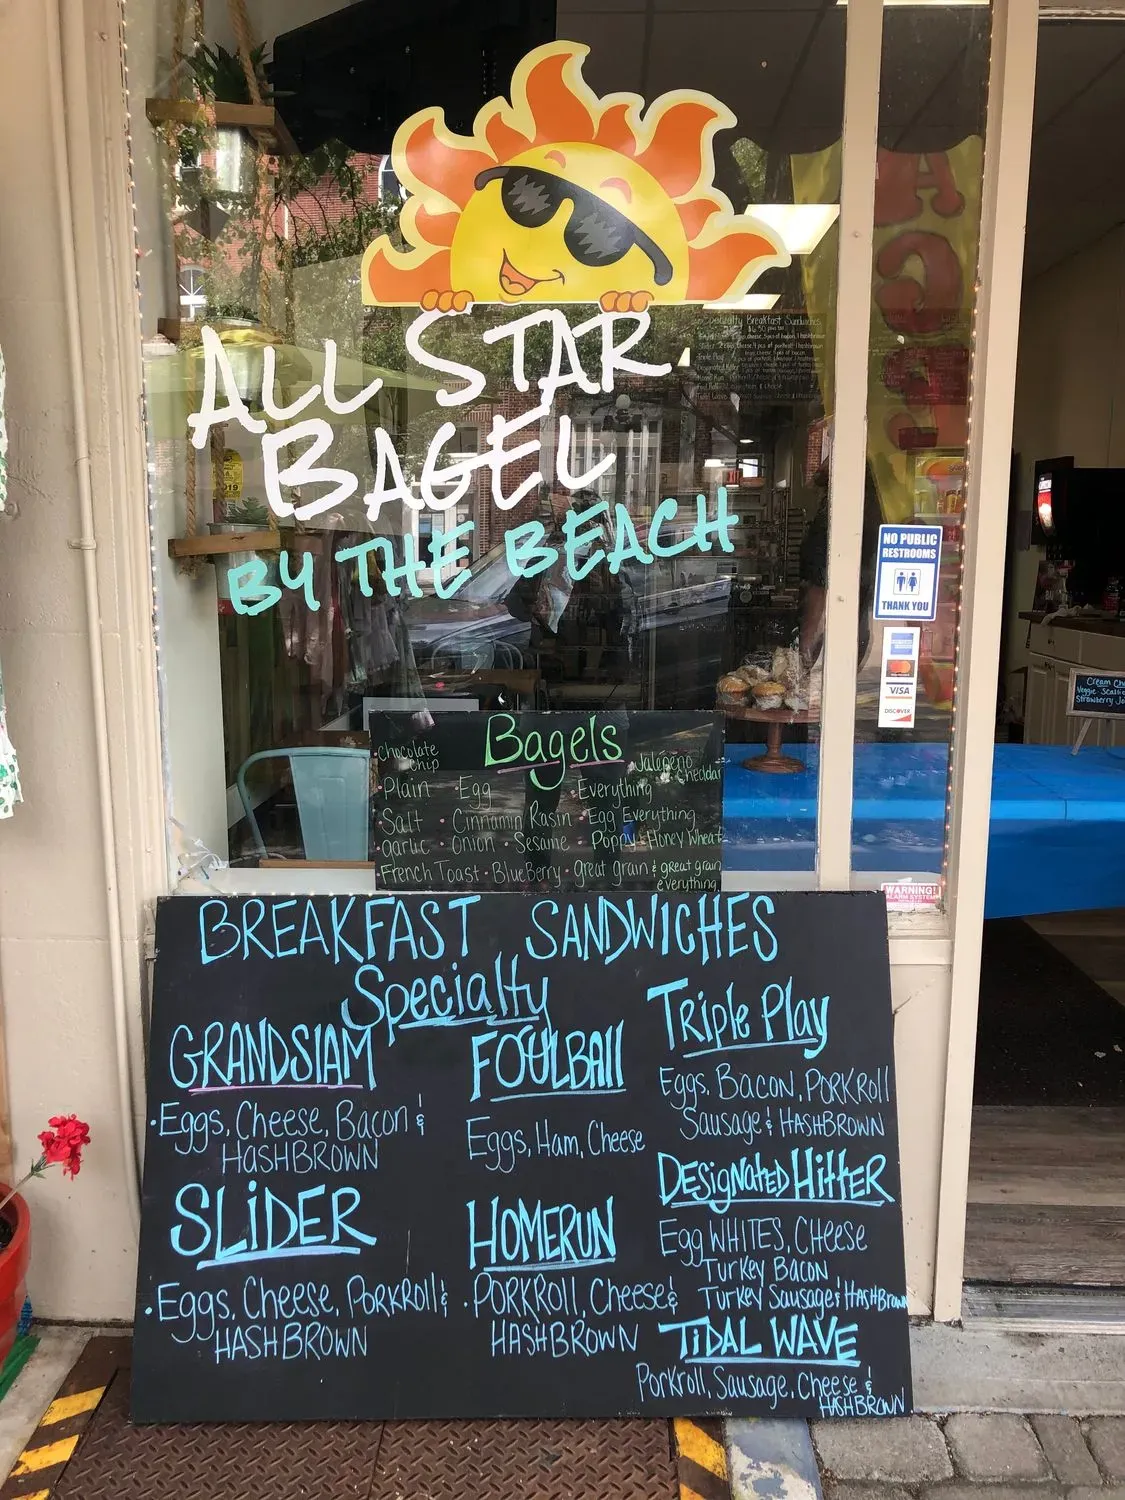 ALL STAR
BAGEL
BY THE BEACH
Specialty Breakfast Sandwiches
2019
NO PUBLIC
RESTROOMS
THANK YOU
VISA
DISCOVER
Cream
Veggie
Strawberry
Bagels
• Chocolate Chip
Jalepeño Cheddar
• Plain • Egg • Everything
• Salt • Cinnamin Rasin • Egg Everything
• garlic • Onion • Sesame • Poppy • Honey Wheat
• French Toast • BlueBerry • Great grain & great grain
everything
WARNING!
ALARM SYSTEM
BREAKFAST SANDWICHES
Specialty
GRANDSlAM
• Eggs, Cheese, Bacon &
HASHBROWN
SLiDER
• Eggs, Cheese, PORKRoll &
HASHBROWN
FOULBAll
Eggs, Ham, Cheese
HOMERUN
• PORKROll, Cheese &
HASHBROWN
TRiple Play
Eggs, Bacon, PORKRoll
Sausage & HASHBROWN
DESigNated HittER
Egg WHITES, CHeese
Turkey Bacon
Turkey Sausage & HASHBrown
TiDAL WAVE
Porkroll, Sausage, Cheese &
HASHBROWN